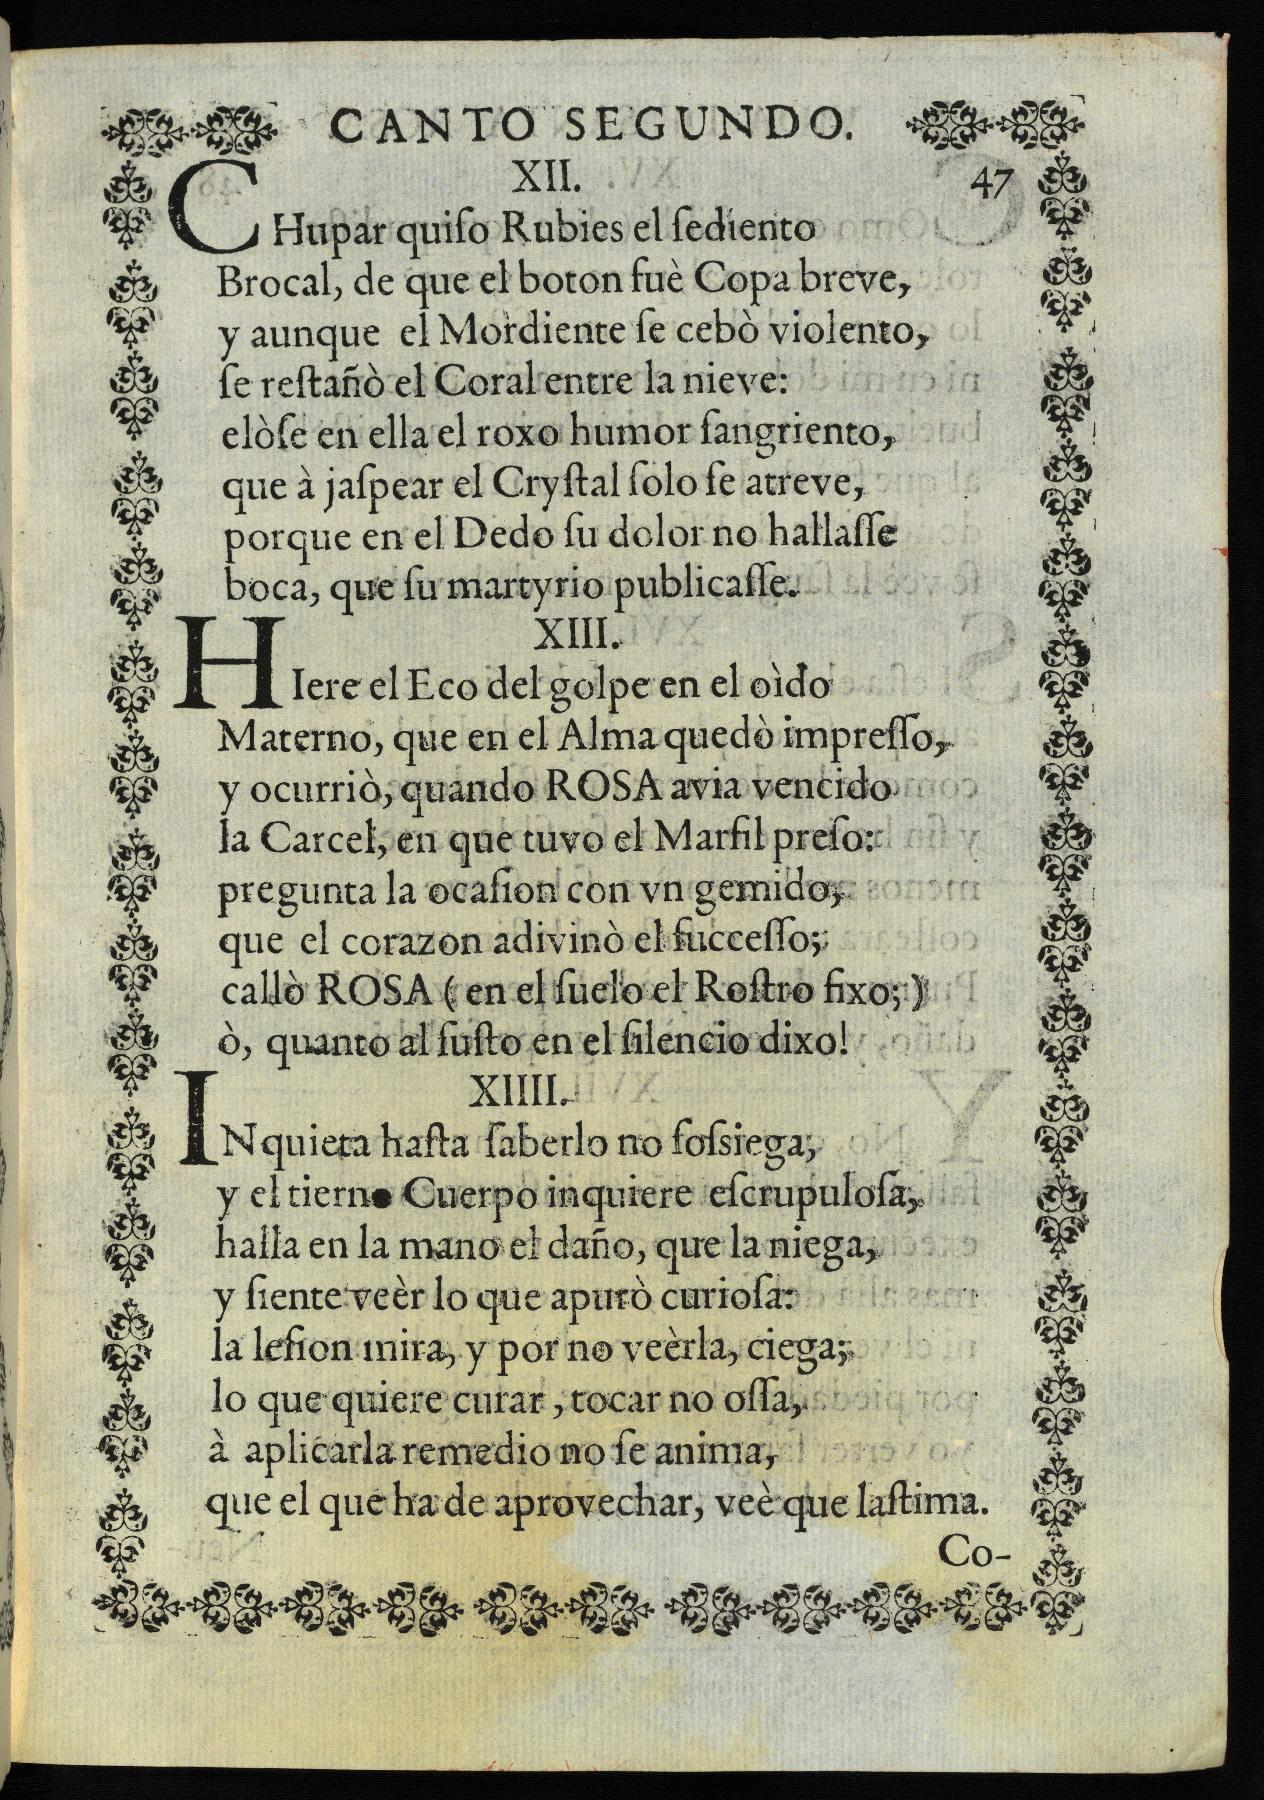 CANTO SEGUNDO.
XII. 47
CHupar quiſo Rubies el ſediento
Brocal, de que el boton fuè Copa breve,
y aunque el Mordiente ſe cebò violento,
ſe reſtañò el Coral entre la nieve:
elòſe en ella el roxo humor ſangriento,
que à jaſpear el Cryſtal ſolo ſe atreve,
porque en el Dedo ſu dolor no hallaſſe
boca, que ſu martyrio publicaſſe.
XIII.
HIere el Eco del golpe en el oìdo
Materno, que en el Alma quedò impreſſo,
y ocurriò, quando ROSA avia vencido
la Carcel, en que tuvo el Marfil preſo:
pregunta la ocaſion con vn gemido,
que el corazon adivinò el ſucceſſo;
callò ROSA ( en el ſuelo el Roſtro fixo; )
ò, quanto al ſuſto en el ſilencio dixo!
XIIII.
INquieta haſta ſaberlo no ſoſsiega,
y el tierno Cuerpo inquiere eſcrupuloſa,
halla en la mano el daño, que la niega,
y ſiente veèr lo que apurò curioſa:
la leſion mira, y por no veèrla, ciega;
lo que quiere curar, tocar no oſſa,
à aplicarla remedio no ſe anima,
que el que ha de aprovechar, veè que laſtima.
Co-